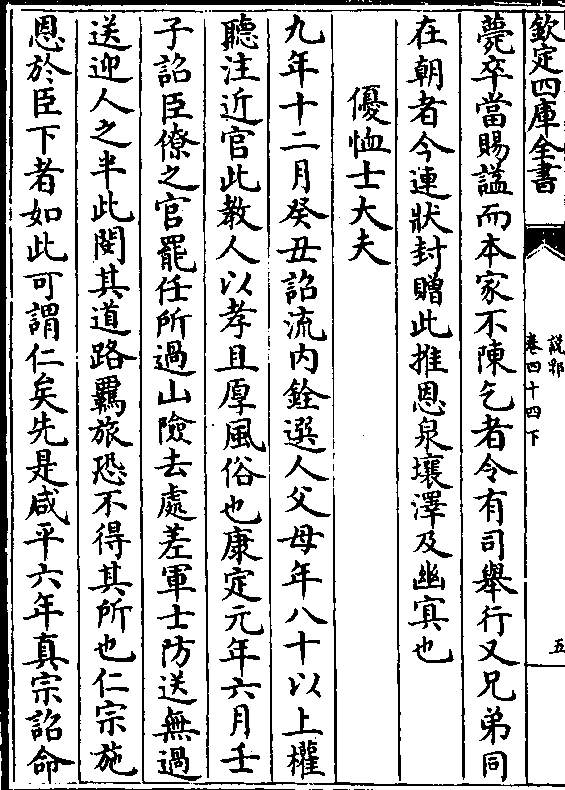 欽定四庫全書
說郛
卷四十四下
五
薨卒當賜諡而本家不陳乞者令有司舉行又兄弟同
在朝者今連狀封贈此推恩泉壤澤及幽㝠也
優恤士大夫
九年十二月癸丑詔流內銓選人父母年八十以上權
聽注近官此教人以孝且厚風俗也康定元年六月壬
子詔臣僚之官罷任所過山險去處差軍士防送無過
送迎人之半此閔其道路羈旅恐不得其所也仁宗施
恩於臣下者如此可謂仁矣先是咸平六年真宗詔命